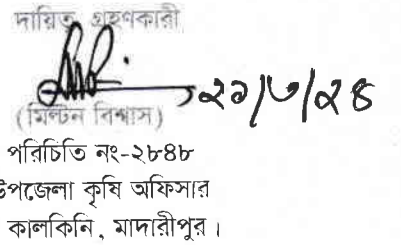 দায়িত্ব গ্রহণকারী
২১/৩/২৪
(মিল্টন বিশ্বাস)
পরিচিতি নং-২৮৪৮
উপজেলা কৃষি অফিসার
কালকিনি, মাদারীপুর।